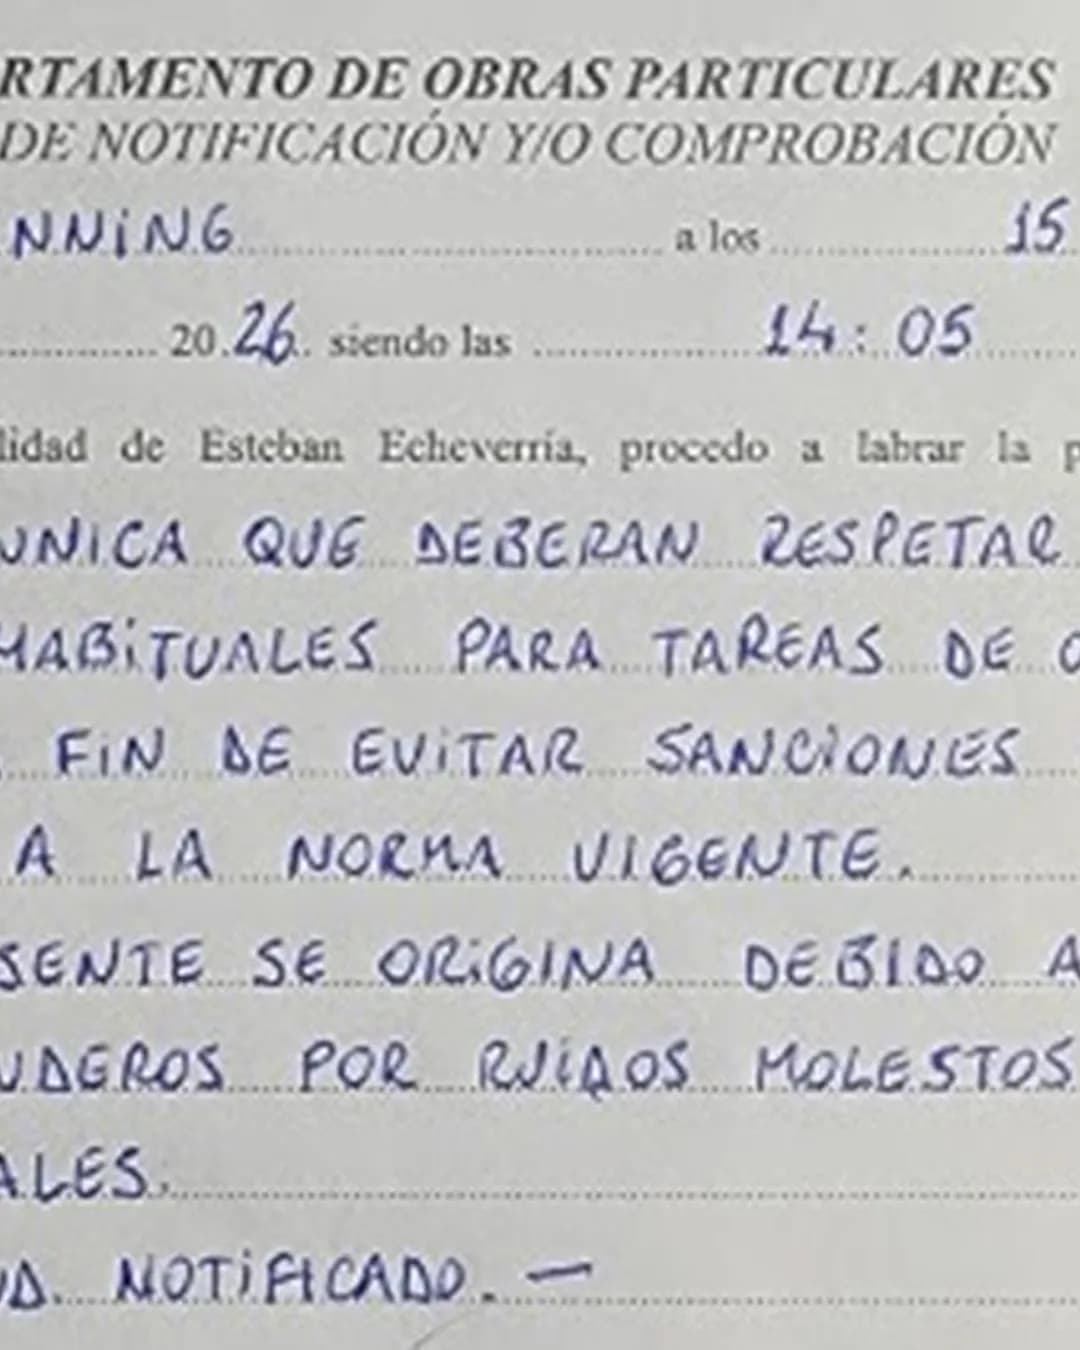 RTAMENTO DE OBRAS PARTICULARES
DE NOTIFICACIÓN Y/O COMPROBACIÓN
NNiNG a los 15
2026. siendo las 14:05
lidad de Esteban Echeverría, procedo a labrar la p
UNICA QUE DEBERAN RESPETAR
HABiTUALES PARA TAREAS DE O
FiN DE EViTAR SANCiONES
A LA NORMA VIGENTE.
SENTE SE ORiGINA DEBIDO A
UDEROS POR RUiDOS MOLESTOS
ALES.
UD. NOTiFICADO. —